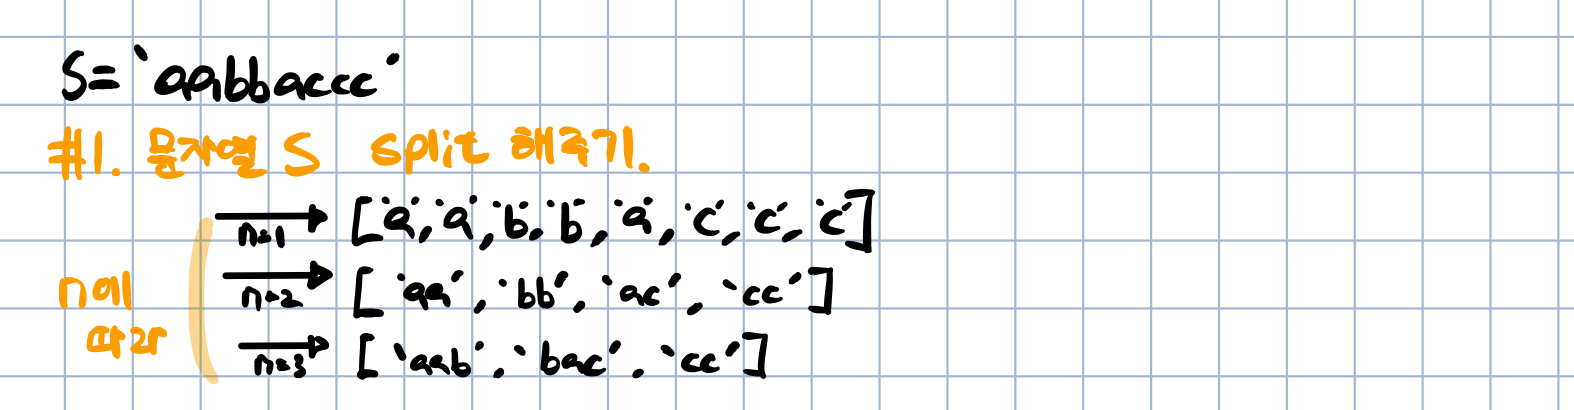 S= 'aabbaccc'
#1. 문자열 S split 해주기.
n=1 ['a', 'a', 'b', 'b', 'a', 'c', 'c', 'c']
n에 n=2 ['aa', 'bb', 'ac', 'cc']
따라 n=3 ['aab', 'bac', 'cc']